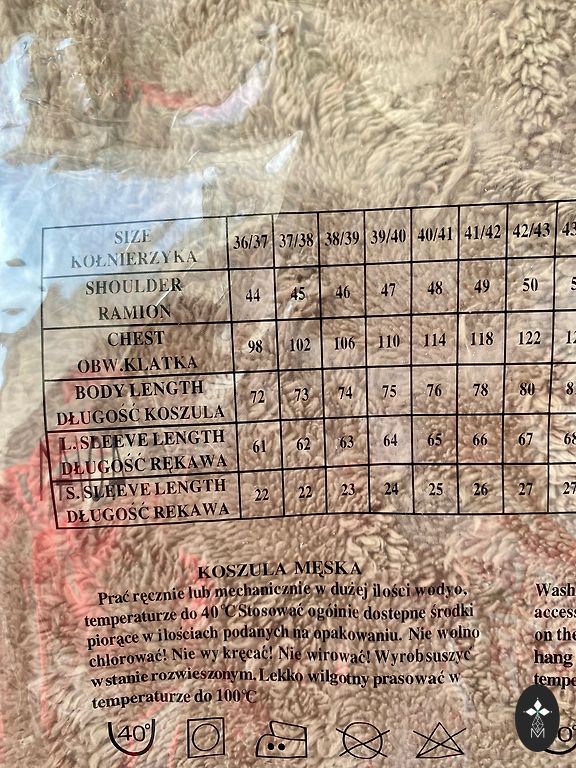 SIZE 36/37 37/38 38/39 39/40 40/41 41/42 42/43 43
KOŁNIERZYKA
SHOULDER 44 45 46 47 48 49 50 5
RAMION
CHEST 98 102 106 110 114 118 122 12
OBW.KLATKA
BODY LENGTH 72 73 74 75 76 78 80 8
DŁUGOŚĆ KOSZULA
L.SLEEVE LENGTH 61 62 63 64 65 66 67 68
DŁUGOŚĆ RĘKAWA
S.SLEEVE LENGTH 22 22 23 24 25 26 27 27
DŁUGOŚĆ RĘKAWA
KOSZULA MĘSKA
Prać ręcznie lub mechanicznie w dużej ilości wodyo,
temperaturze do 40°C Stosować ogóinie dostępne środki
piorące w ilościach podanych na opakowaniu. Nie wolno
chlorować! Nie wy kręcać! Nie wirować! Wyrób suszyć
w stanie rozwieszonym. Lekko wilgotny prasować w
temperaturze do 100°C
Wash
access
on the
hang
tempe
40°
0°
M